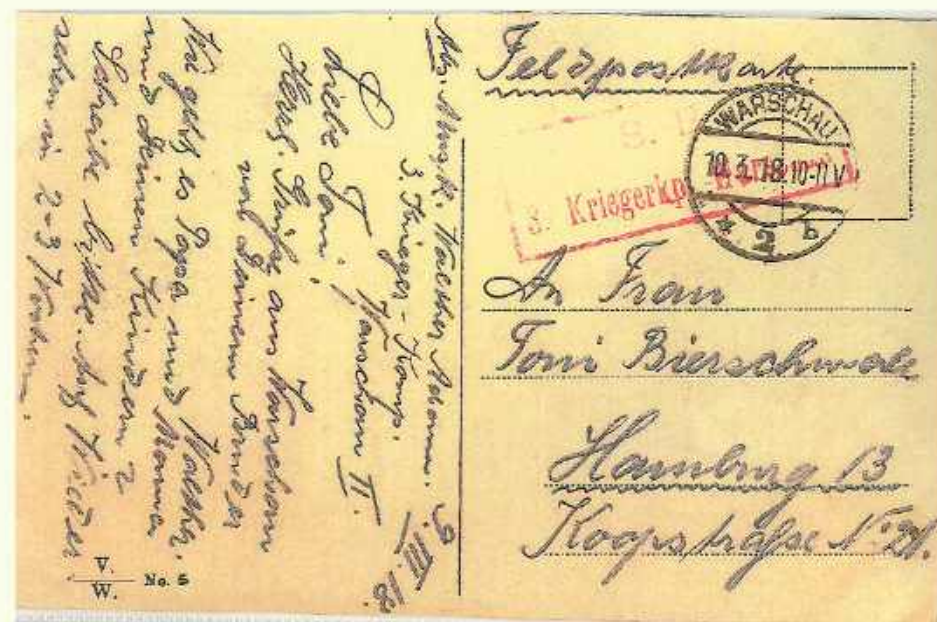 Feldpostkarte.
WARSCHAU
10.3.18.10-11 V
2 b
S. B.
3. Kriegerkp.
An Frau
Toni Bierschwale
Hamburg 13
Koopstraße No
Abs. Musk. Walther
3. Krieger-Komp.
Warschau II.
9. III. 18.
Liebe Toni!
Herzl. Grüße aus Warschau
von Deinem Bruder
Walther.
Wie geht es Papa und Mama
und Deinen Kindern?
Schreibe bitte. Auf Wieder
sehen in 2-3 Wochen.
V.
W.
No. 5